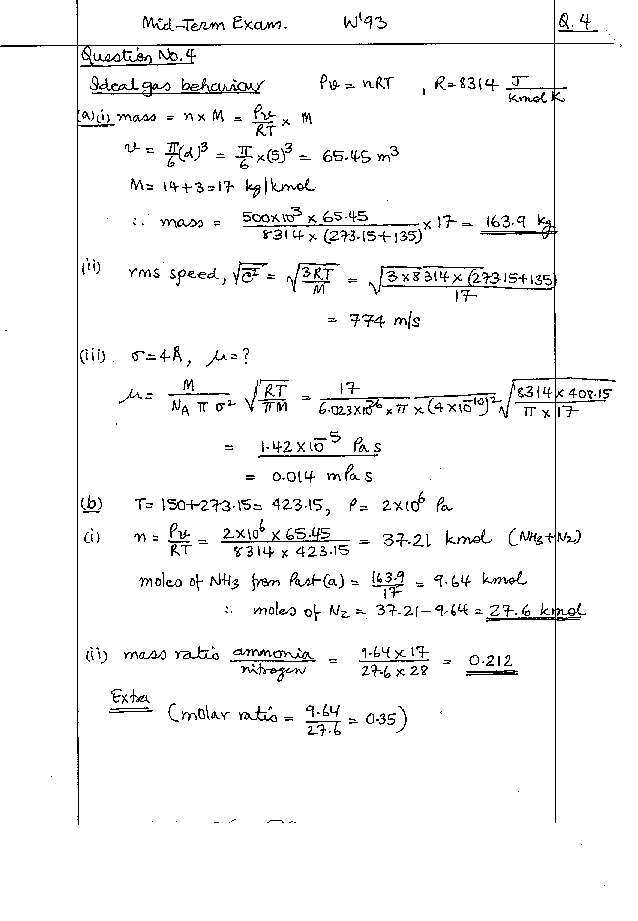 Mid-Term Exam. W'93 Q.4
Question No.4
Ideal gas behaviour Pv = nRT , R=8314 J/kmol K
(a)(i) mass = n x M = Pv/RT x M
v = π/6 (d)³ = π/6 x (5)³ = 65.45 m³
M = 14+3=17 kg/kmol
∴ mass = 500x10³ x 65.45 / 8314 x (273.15+135) x 17 = 163.9 kg
(ii) rms speed, √c̄² = √3RT/M = √3 x 8314 x (273.15+135)/17
= 774 m/s
(iii). σ=4Å, μ=?
μ = M/NA π σ² √RT/πM = 17/6.023x10²⁶ x π x (4x10⁻¹⁰)² √8314 x 408.15/π x 17
= 1.42 x 10⁻⁵ Pa s
= 0.014 mPa s
(b) T= 150+273.15= 423.15, P = 2x10⁶ Pa
(i) n = Pv/RT = 2x10⁶ x 65.45/8314 x 423.15 = 37.21 kmol (NH3+N2)
moles of NH3 from Part(a) = 163.9/17 = 9.64 kmol
∴ moles of N2 = 37.21-9.64 = 27.6 kmol
(ii) mass ratio ammonia/nitrogen = 9.64 x 17/27.6 x 28 = 0.212
Extra
(molar ratio = 9.64/27.6 = 0.35)